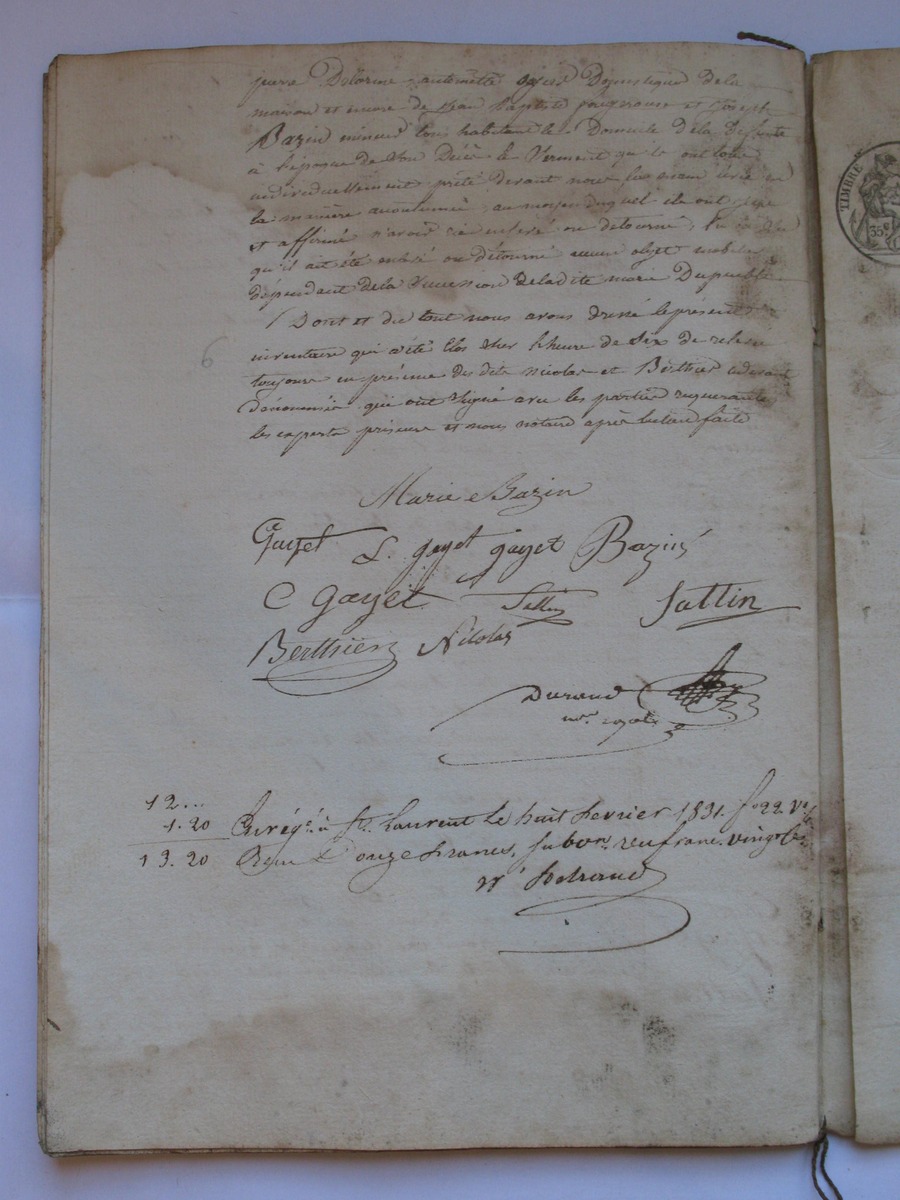 pierre Delorme antomette gayet Domestique de la
maison et encore de Jean Baptiste fougerouse et Joseph
Bazin mineur tous habitant le Domicile de la Deffunte
à l'époque de son Décè le Serment qu'ils ont tous
individuellement prêté devant nous la main levée en
la manière accoutumée, au moyen duquel ils ont juré
et affirmé n'avoir rien enlevé ou detourné, vu ou su
qu'il ait été enlevé ou détourné aucun objet mobilier
dépendant de la Succession de ladite marie Dupuble
Dont et du tout nous avons dressé le présent
inventaire qui a été Clos sur l'heure de six de relevée
toujours en présence des dits Nicolas et Berthier cidevant
dénommés qui ont signé avec les parties requerantes
les experts priseurs et nous notaire après lecture faite
Marie Bazin
Gayet L. gayet gayet Bazin
C Gayet Sattin Sattin
Berthier Nicolas
Durand
nre royal
12...
1.20 Enrégé. à St. Laurent le huit fevrier 1831. fo 22. Vo
13.20 Reçu onze francs, subvon. un franc vingt c
TIMBRE
35c
6